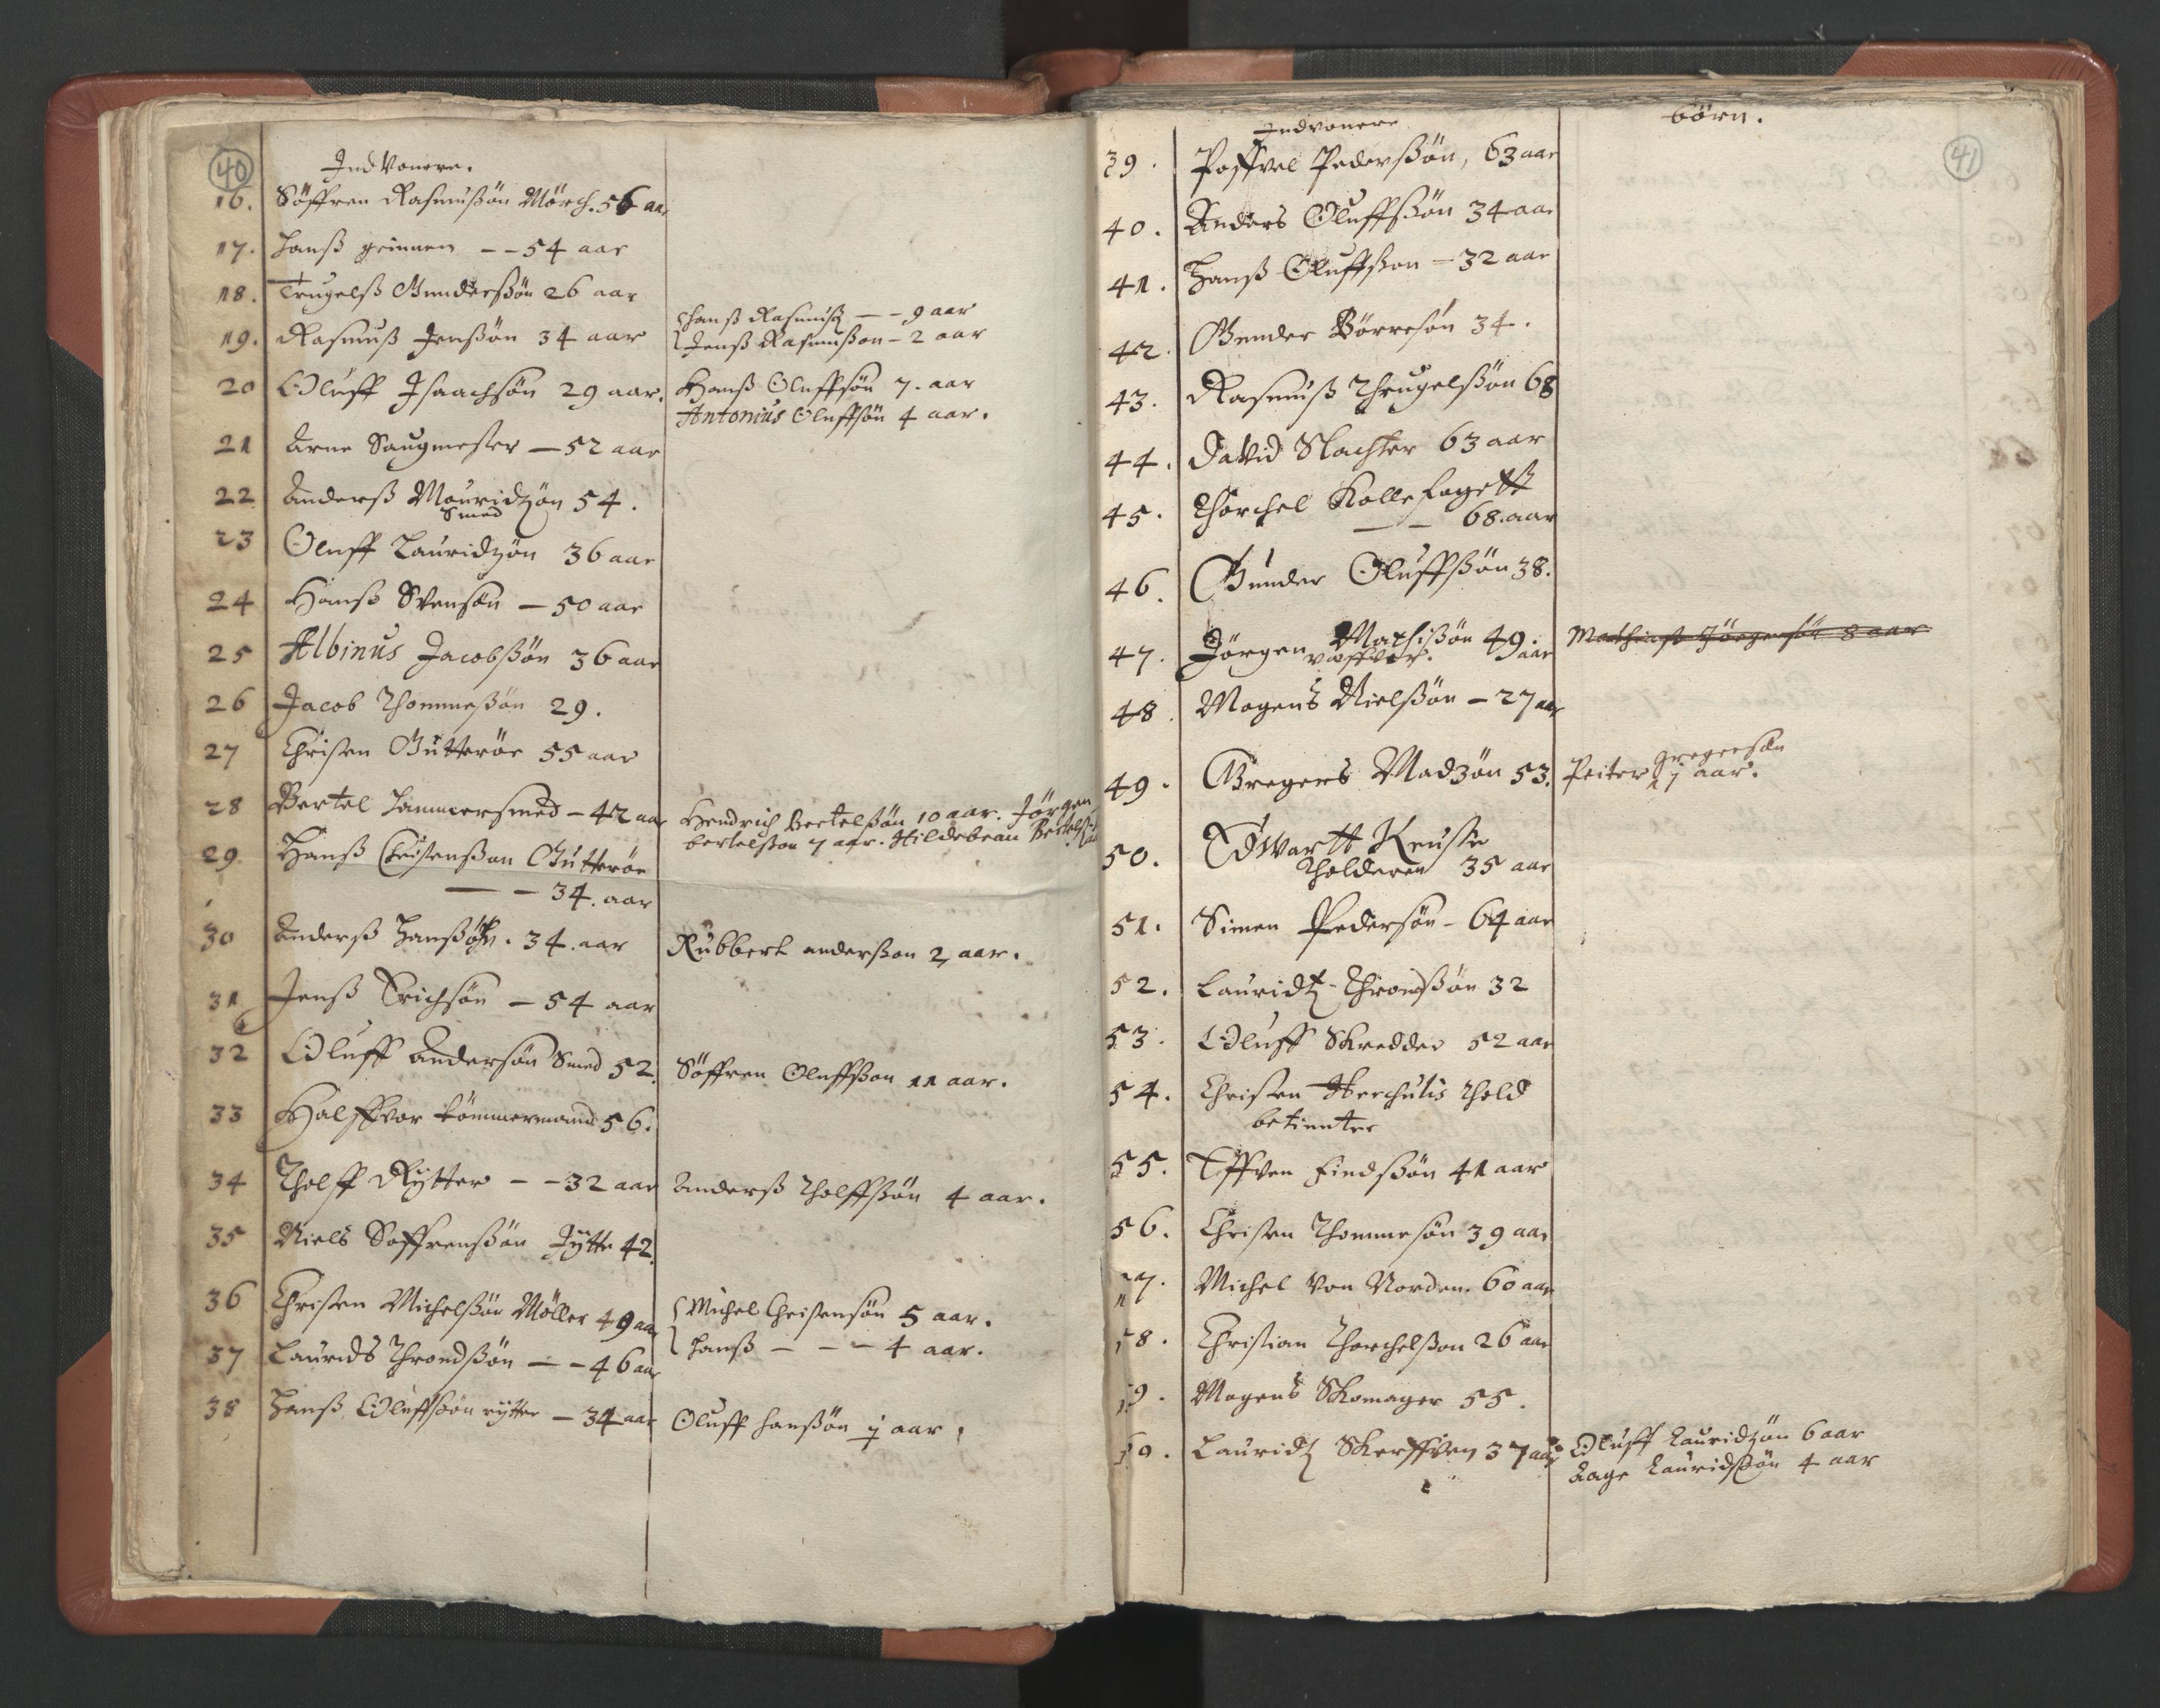 40
IndVonere.
16. Söffren Rasmußön Mörch. 56 aar
17. Hanß grinnem - - 54 aar
18. Trugelß Gunderßön 26 aar
19. Rasmuß Jenßön 34 aar
Hanß Rasmuß - - 9 aar
Jenß Rasmußon - 2 aar
20 Oluff Isaachsön 29 aar.
Hanß Oluffsön 7. aar
Antonius Oluffsön 4 aar.
21 Arne Saugmester - 52 aar
22 Anderß Mouridzön 54.
Smed
23 Oluff Lauridzön 36 aar
24 Hanß Svensøn - 50 aar
25 Albinus Jacobßön 36 aar
26 Jacob Thommeßön 29.
27 Christen Gutterör 55 aar
28 Bertel Hammersmed - 42 aar
Hendrich Bertelßön 10 aar. Jörgen
bertelßon 7 aar. Hildebran Bertelß
29 Hanß Christenßon Gutterör
- - 34. aar
30 Anderß Hanßön. 34. aar
Rubbert anderßon 2 aar.
31 Jenß Erichsön - 54 aar
32 Oluff Andersön Smed 52.
Söffren Oluffßon 11 aar.
33 Halffvor tömmermand 56.
34 Tholff Rytter - - 32 aar
Anderß Tholffßön 4 aar.
35 Niels Soffrenßön Jytte 42.
36 Christen Michelßön Möller 49 aar
Michel Christensön 5 aar.
Hanß - - - 4 aar.
37 Laurids Throndßön - - 46 aar
38 Hanß Oluffßön rytter - 34 aar
Oluff Hanßön j aar.
41
Indvonere
börn.
39. Poffvel Pederßön, 63 aar
40. Anders Oluffßön 34 aar
41. Hanß Oluffßon - 32 aar
42. Gunder Börresön 34.
43. Rasmuß Thrugelßön 68
44. David Slachter 63 aar
45. Thorchel Kollefogett
- - 68. aar
46. Gunder Oluffßön 38.
47. Jörgen Mathißön 49.
aar
Mathiaß Jörgensön 8 aar
48. Mogens Nielßön - 27 aar
49. Gregers Madzön 53.
gregersøn
Peiter 17 aar.
50. Edwartt Reusse
Tholderen 35 aar
51. Simen Pedersön - 64 aar
52. Lauridtz Throndßön 32
53. Oluff Skredder 52 aar
54. Christen Herchulis Thold
betiennter
55. Effven Findßön 41 aar
56. Christen Thommesön 39 aar
57. Michel Von Norden. 60 aar
58. Christian Thorchelßon 26 aar
59. Mogens Skomager 55.
60. Lauridtz Skerffven 37 aar
Oluff Lauridzön 6 aar
Aage Lauridßön 4 aar